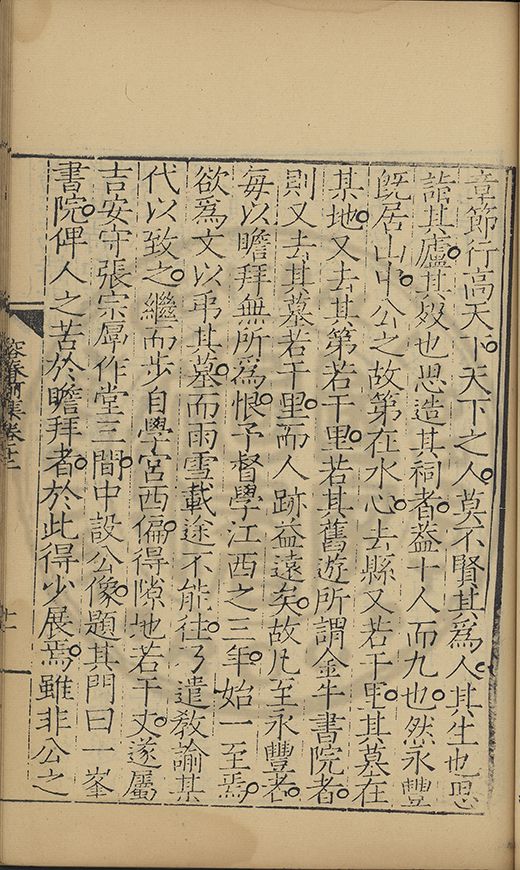 章節行高天下天下之人莫不賢其爲人其生也思
詣其廬其歿也思造其祠者葢十人而九也然永豐
旣居山中公之故第在水心去縣又若干里其墓在
某地又去其第若干里若其舊遊所謂金牛書院者
則又去其墓若干里而人跡益遠矣故凡至永豐者
每以瞻拜無所爲恨予督學江西之三年始一至焉
欲爲文以弔其墓而雨雪載途不能往乃遣敎諭某
代以致之繼而步自學宮西偏得隙地若干丈遂屬
吉安守張宗厚作堂三間中設公像題其門曰一峯
書院俾人之苦於瞻拜者於此得少展焉雖非公之
容春前集卷十二